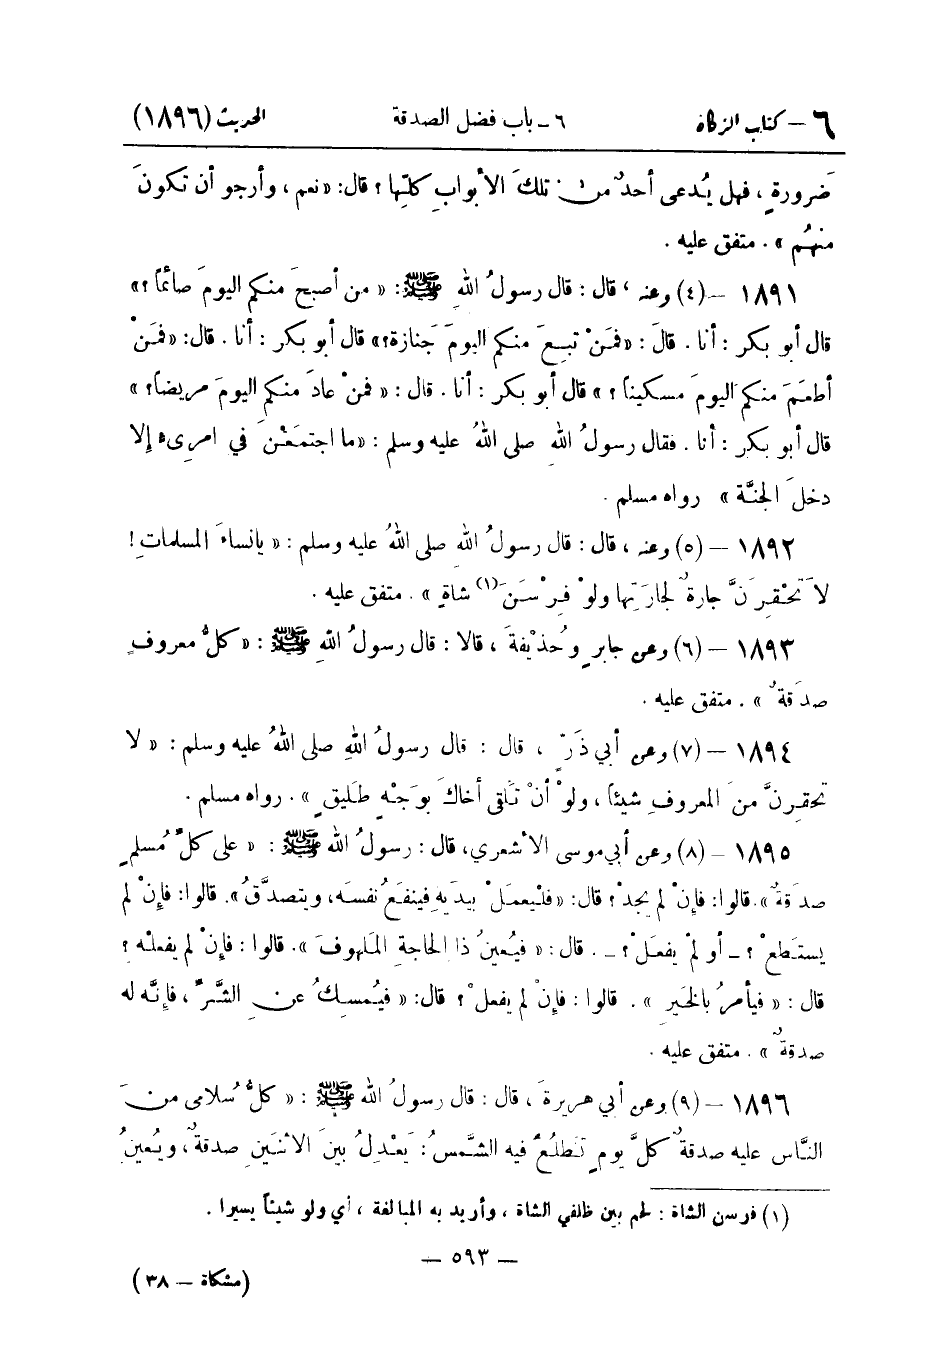 ٦ – كتاب الزكاة ٦ ـ باب فضل الصدقة الحديث (١٨٩٦)
ضرورةٍ ، فهل يُدعى أحدٌ من تلكَ الأبوابِ كلّها ؟ قال: « نعم ، وأرجو أن تكونَ
منهُم » . متفق عليه .
١٨٩١ – (٤) وعنه ، قال : قال رسولُ اللهِ ﷺ: « من أصبحَ منكم اليومَ صائماً ؟»
قال أبو بكر : أنا . قالَ : «فمَنْ تبِعَ منكم اليومَ جَنازة؟» قال أبو بكر : أنا . قال: «فمَنْ
أطعَمَ منكم اليومَ مسكيناً ؟ » قال أبو بكر : أنا . قال : « فمنْ عادَ منكم اليومَ مريضاً؟ »
قال أبو بكر : أنا . فقال رسولُ اللهِ صلى اللهُ عليه وسلم : «ما اجتمَعْنَ في امرىءٍ إلا
دخلَ الجنَّة » رواه مسلم .
١٨٩٢ – (٥) وعنه ، قال : قال رسولُ اللهِ صلى اللهُ عليه وسلم : « يانساءَ المسلماتِ !
لاَ تحْقِرَنَّ جارةٌ لجارَتِها ولوْ فِرْسَنَ(١) شاةٍ » . متفق عليه .
١٨٩٣ – (٦) وعن جابرٍ وحُذيْفةَ ، قالا : قال رسولُ اللهِ ﷺ : « كلُّ معروفٍ
صدَقةٌ » . متفق عليه .
١٨٩٤ – (٧) وعن أبي ذَرّ ٍ ، قال : قال رسولُ اللهِ صلى اللهُ عليه وسلم : « لا
تحقِرنَّ منَ المعروفِ شيئاً ، ولوْ أنْ تَلقى أخاكَ بوَجْهٍ طَليقٍ » . رواه مسلم .
١٨٩٥ – (٨) وعن أبي موسى الأشعري، قال : رسولُ الله ﷺ : « على كلِّ مُسلمٍ
صدَقةٌ ». قالوا: فإنْ لم يجدْ ؟ قال: «فلْيعمَلْ بيدَيهِ فينفَعُ نفسَه، ويتصدَّقُ». قالوا: فإنْ لم
يستَطعْ ؟ ـ أو لمْ يفعَلْ ؟ ـ . قال : « فيُعينُ ذا الحاجةِ المَلهوفَ ». قالوا : فإنْ لم يفعلْه ؟
قال : « فيأمرُ بالخَيرِ » . قالوا : فإنْ لم يفعلْ ؟ قال: « فيُمسكُ عن الشَّرِّ ، فإنَّه له
صدقةٌ » . متفق عليه .
١٨٩٦ – (٩) وعن أبي هريرةَ ، قال : قال رسولُ الله ﷺ : « كلُّ سُلامى منَ
النَّاس عليه صدقةٌ كلَّ يومٍ تَطلُعُ فيه الشَّمسُ : يَعْدلُ بينَ الاثنَينِ صدقةٌ ، ويُعينُ
(١) فرسن الشاة : لحم بين ظلفي الشاة ، وأريد به المبالغة ، أي ولو شيئاً يسيرا .
– ٥٩٣ –
(مشكاة – ٣٨)